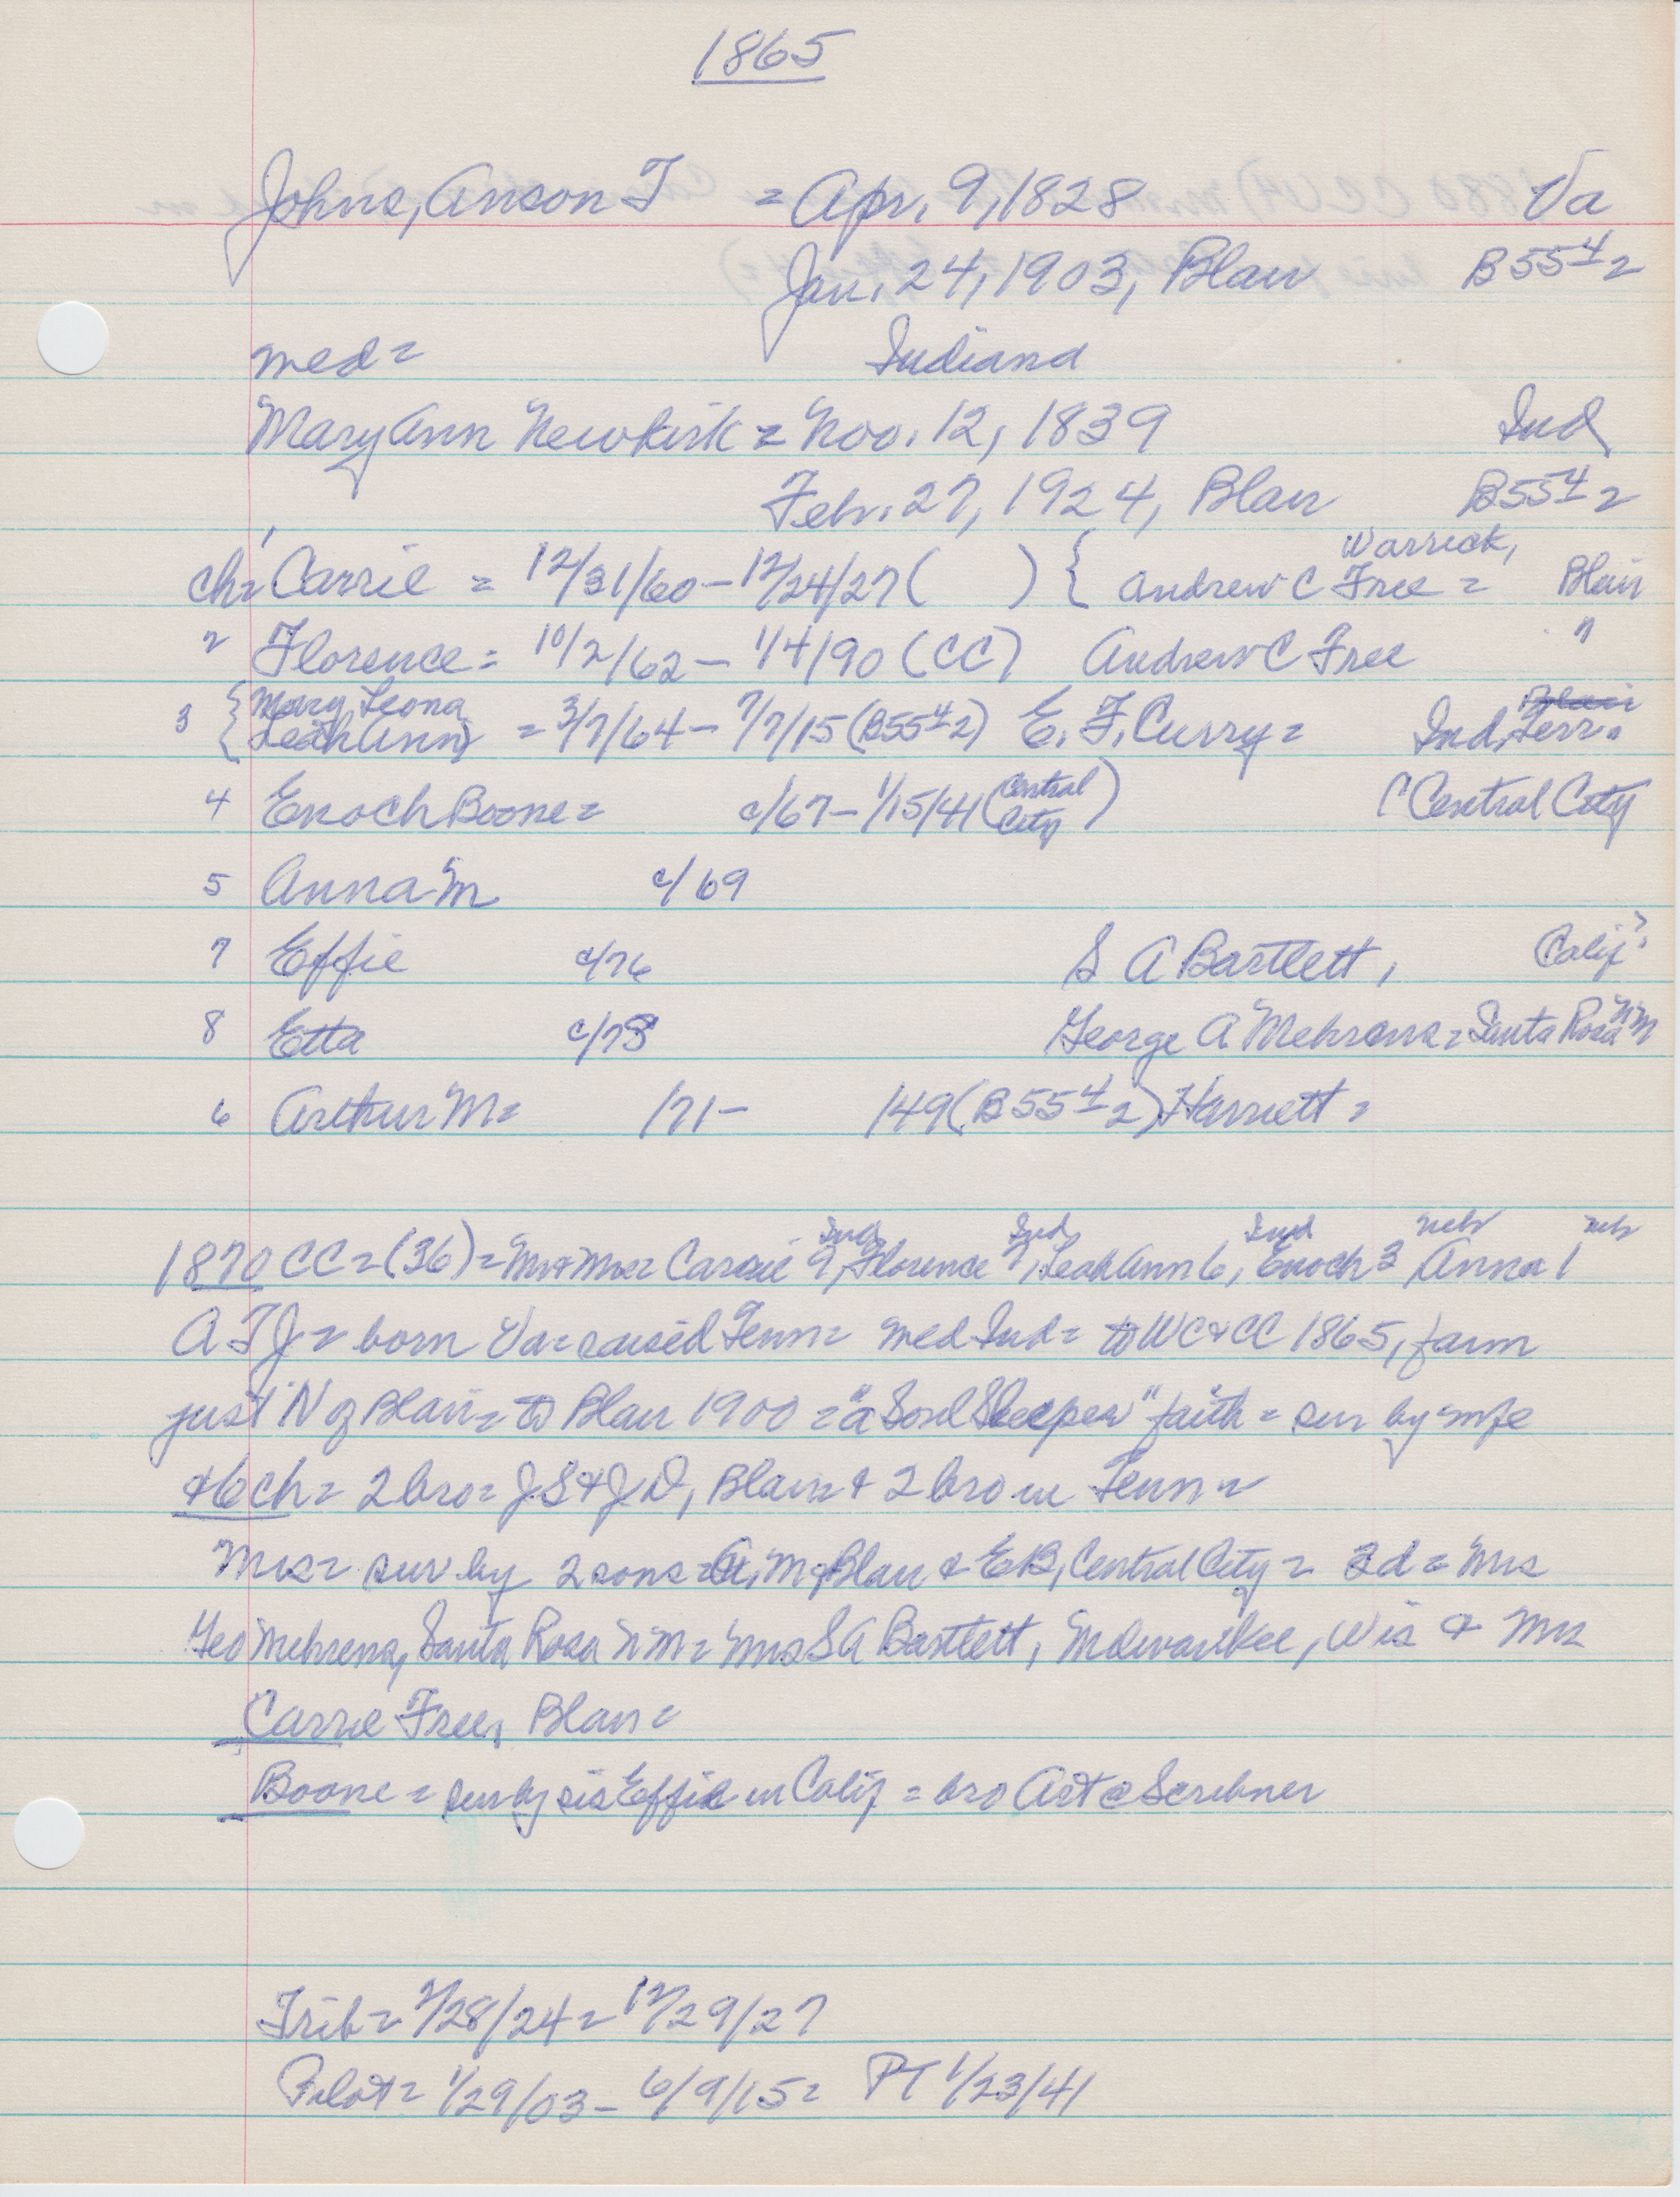 1865
Johns, Anson T = Apr. 9, 1828 Va
Jan. 24, 1903, Blair B55 4/2
med = Indiana
Mary Ann Newkirk = Nov. 12, 1839 Ind
Feb. 27, 1924, Blair B55 4/2
Warrick,
ch= 1 Carrie = 12/31/60 – 12/24/27 ( ) { Andrew C Free = Blair
2 Florence = 10/2/62 – 1/4/90 (CC) Andrew C Free "
Mary Leona Blair
3 { Leah Ann } = 3/7/64 – 7/7/15 (B55 4/2) E. F. Curry = Ind. Terr.
4 Enoch Boone = c/67 – 1/15/41 (Central City) (Central City
5 Anna M c/69
7 Effie c/76 S A Bartlett, Calif
8 Etta c/78 George A Mehrens = Santa Rosa NM
6 Arthur M = /71 – /49 (B55 4/2) Harriett =
Ind Ind Ind Neb Neb
1870 CC = (36) = Mr & Mrs = Carrie 9, Florence 7, Leah Ann 6, Enoch 3 Anna 1
A T J = born Va = raised Tenn = med Ind = to WC & CC 1865, farm
just N of Blair = to Blair 1900 = "a Soul Sleeper" faith = sur by wife
& 6 ch = 2 bro = J S & J D, Blair & 2 bro in Tenn =
Mrs = sur by 2 sons = A. M, Blair & E B, Central City = 3 d = Mrs
Geo Mehrens, Santa Rosa N M = Mrs S A Bartlett, Milwaukee, Wis & Mrs
Carrie Free, Blair =
Boone = sur by sis Effie in Calif = bro Art @ Scribner
Trib = 2/28/24 = 12/29/27
Pilot = 1/29/03 – 6/9/15 = PT 1/23/41